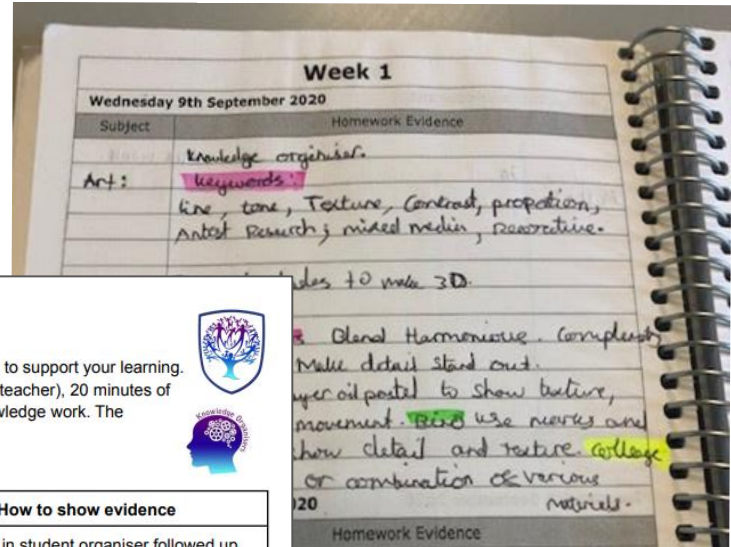 Week 1
Wednesday 9th September 2020
Subject Homework Evidence
Knowledge orginiser.
Art: keywords:
line, tone, Texture, Contrast, propotion,
Artist Research, mixed media, Decorative.
to make 3D.
Blend Harmonious. Complexity
Make detail stand out.
oil pastel to show texture,
movement. Biro use marks and
show detail and texture. Collage
or combination of various
materials.
20
Homework Evidence
to support your learning.
teacher), 20 minutes of
wledge work. The
Knowledge Organisers
How to show evidence
in student organiser followed up